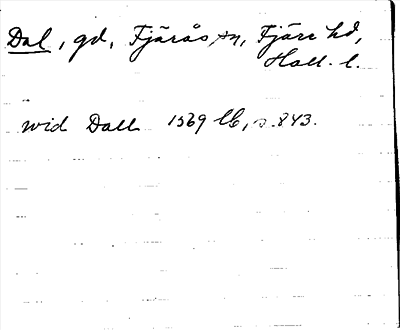 Dal, gd, Fjärås sn, Fjäre hd,
Hall. l.
wid Dall 1569 Ub, s. 843.